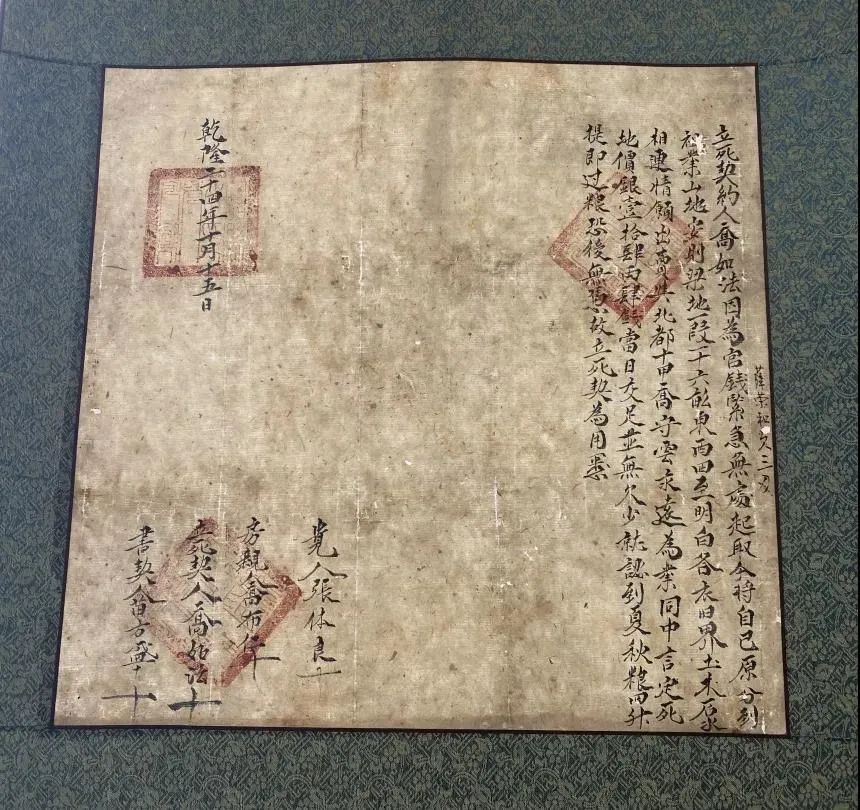 立死契約人喬如法因為官錢緊急無處起取今將自己原分到
祖業山地安則梁地一段一十六畝東西四至明白各衣旧界土木石泉
相連情願出賣與北都十甲喬守雲永遠為業同中言定死
地價銀壹拾肆両肆錢當日交足並無欠少就認到夏秋粮四升
提即过粮恐後無憑故立死契為用照
乾隆二十四年十月十五日
張体良十
房親人喬布
立死契人喬如法十
書契人苗方盛十